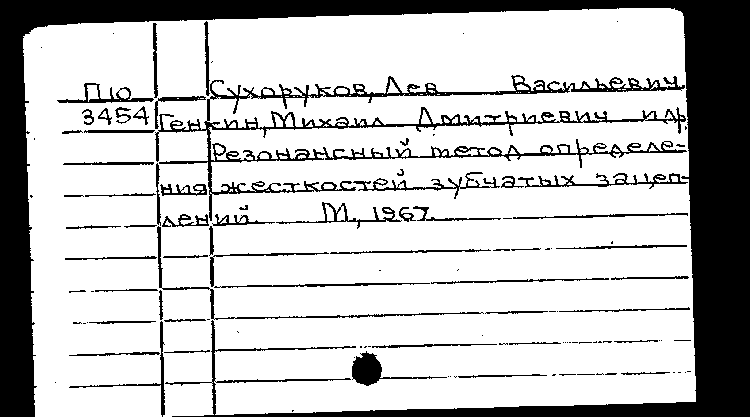 П10 Сухоруков, Лев Васильевич
3454 Генкин, Михаил Дмитриевич и др.
Резонансный метод определе-
ния жесткостей зубчатых зацеп-
лений. М., 1967.